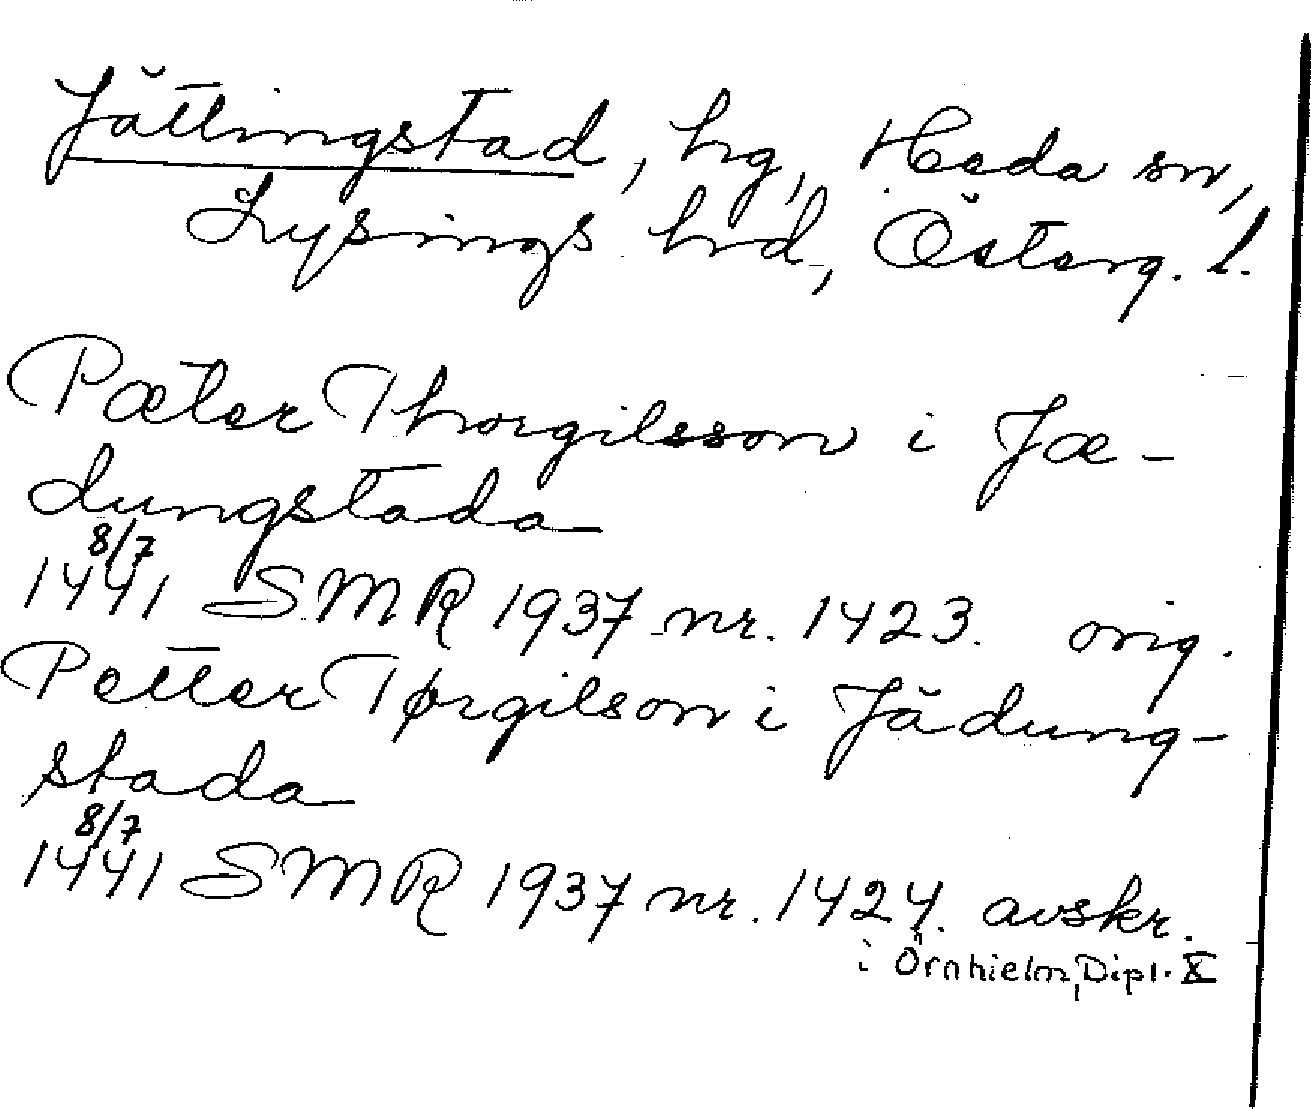 Jättingstad, hg, Heda sn,
Lysings hrd, Österg. l.
Pæter Thorgilsson i Jæ-
dungstada
1441 8/7 SMR 1937 nr. 1423. orig.
Petter Tørgilson i Jädung-
stada
1441 8/7 SMR 1937 nr. 1424. avskr.
i Örnhielm, Dipl. X